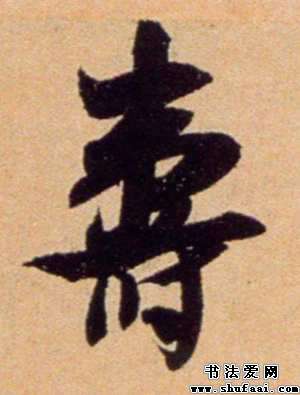 壽
书法爱网
www.shufaai.com